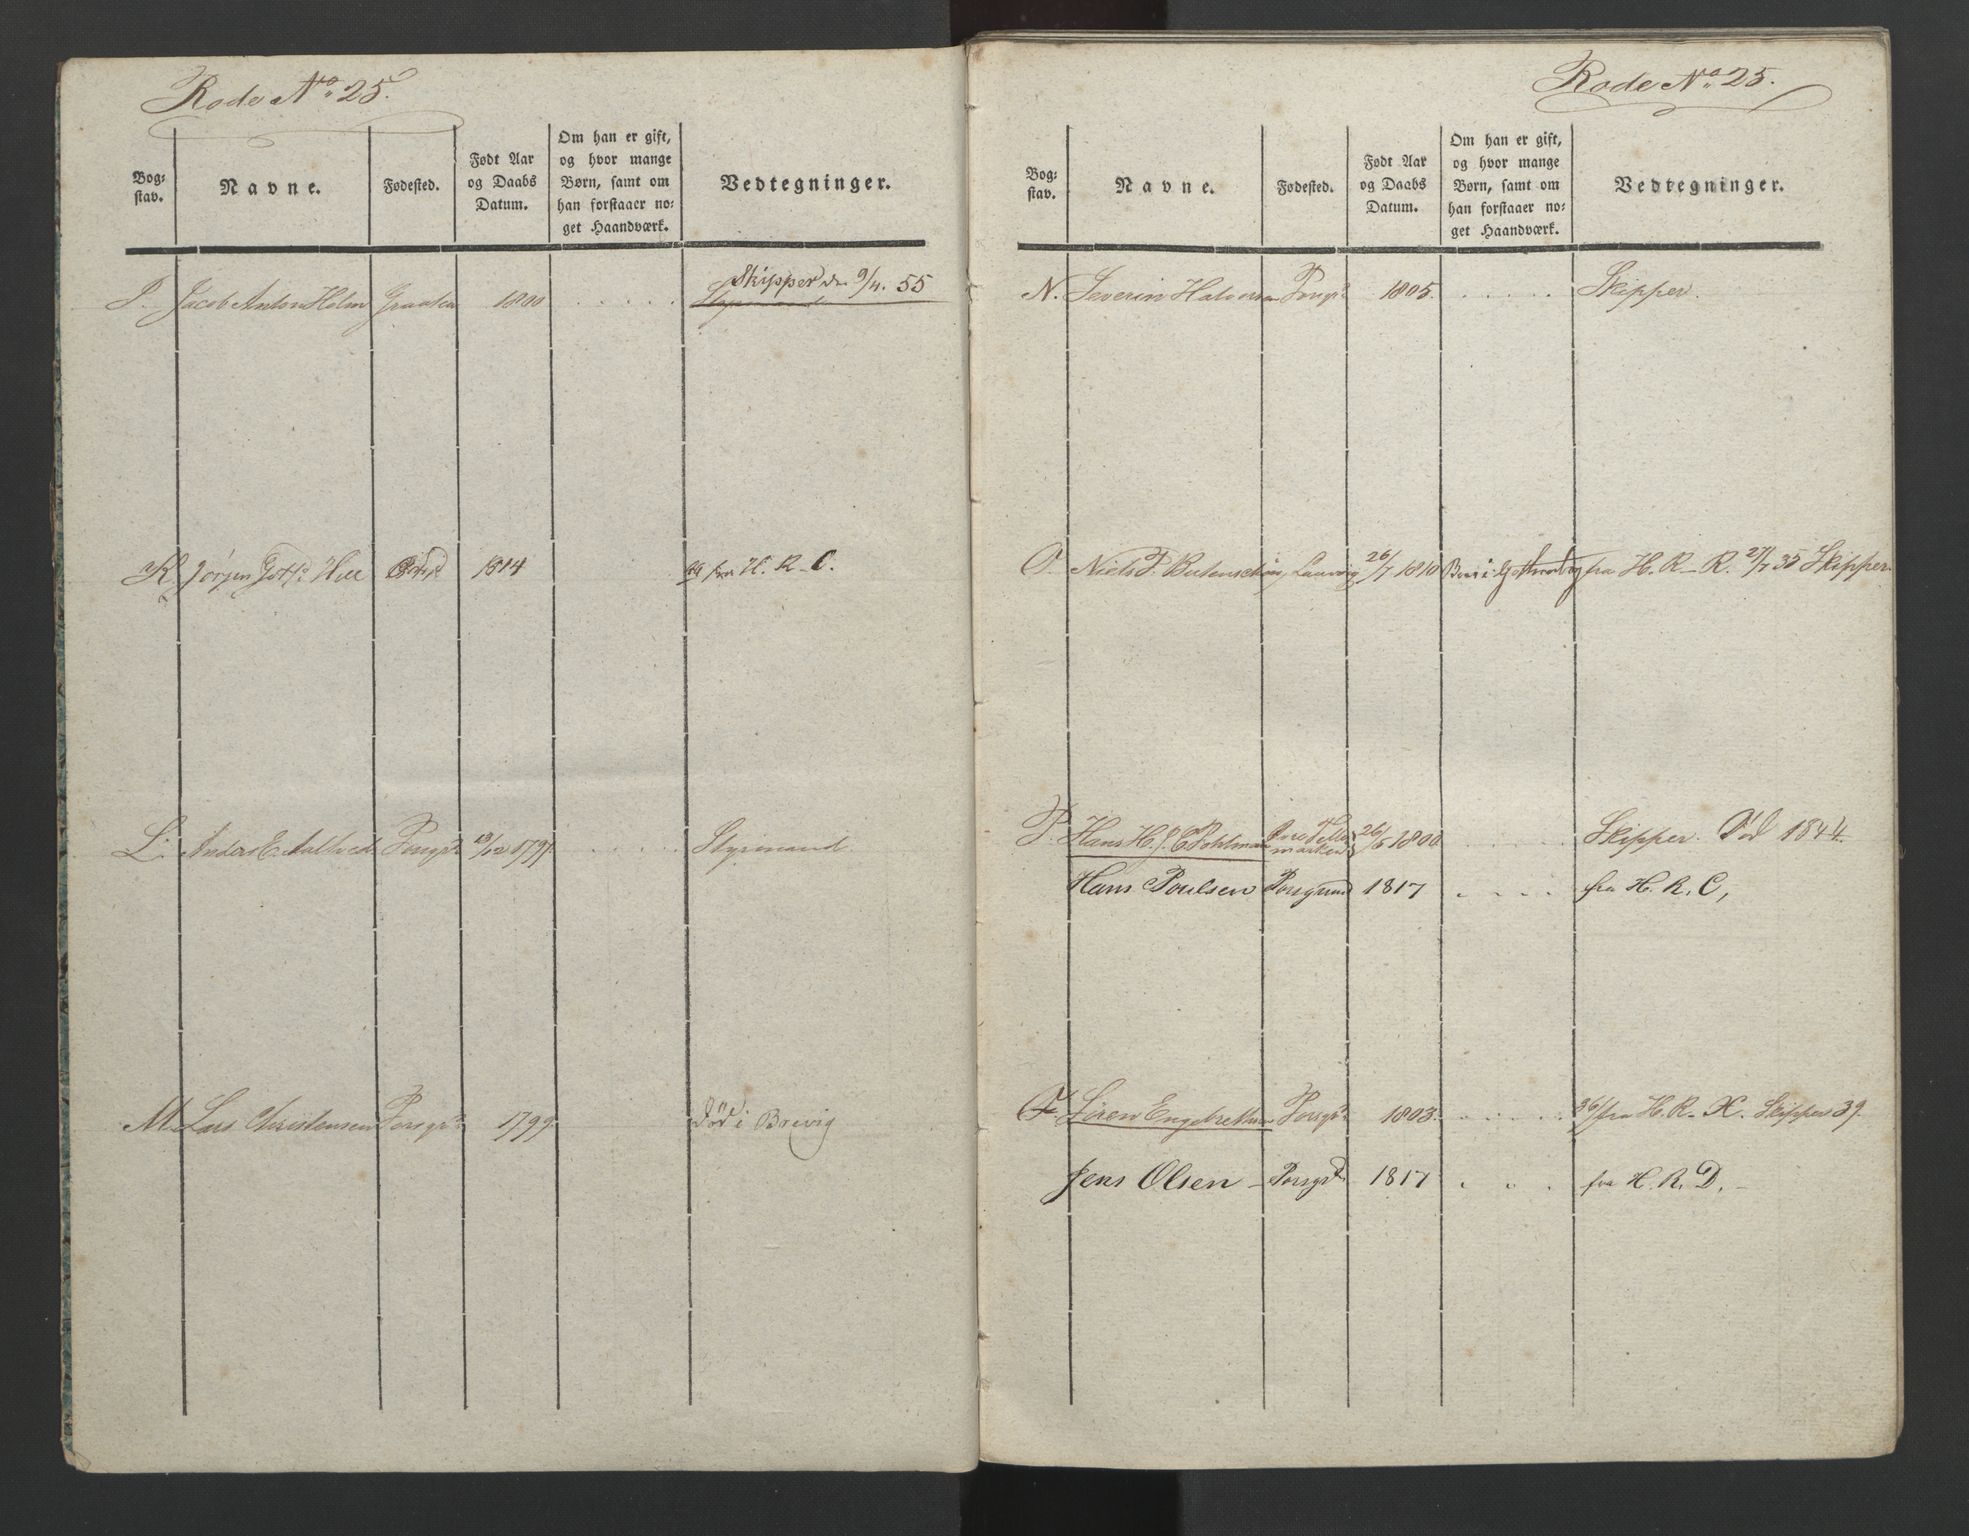 Rode No 25.
Bog=
stav.
Navne.
Fødested.
Født Aar
og Daabs
Datum.
Om han er gift,
og hvor mange
Børn, samt om
han forstaaer no=
get Haandværk.
Vedtegninger.
Skipper den 9/4. 55
Jacob Anton Holm 1800 Styrmand
K Jørgen 1814 fra H. R. C.
L. Anders E. Porsgrd 13/12 1797. Styrmand
M. Lars Christensen Porsgrd 1799. Død i Brevig
Rode No 25.
Bog=
stav.
Navne.
Fødested.
Født Aar
og Daabs
Datum.
Om han er gift,
og hvor mange
Børn, samt om
han forstaaer no=
get Haandværk.
Vedtegninger.
N. Severin Halvorsen Porsgrd 1805. Skipper.
O. Niels P. Butenschøn Laurvig 26/7 1810 fra H. R. R. 27/7 35 Skipper.
P. Hans H. 26/5 1800 Skipper. Død 1844.
Hans Poulsen Porsgrund 1817 fra H. R. C,
Søren Engebrethsen Porsgrd 1803. fra H. R. X. Skipper 39.
Jens Olsen Porsgrd 1817 fra H. R. D.